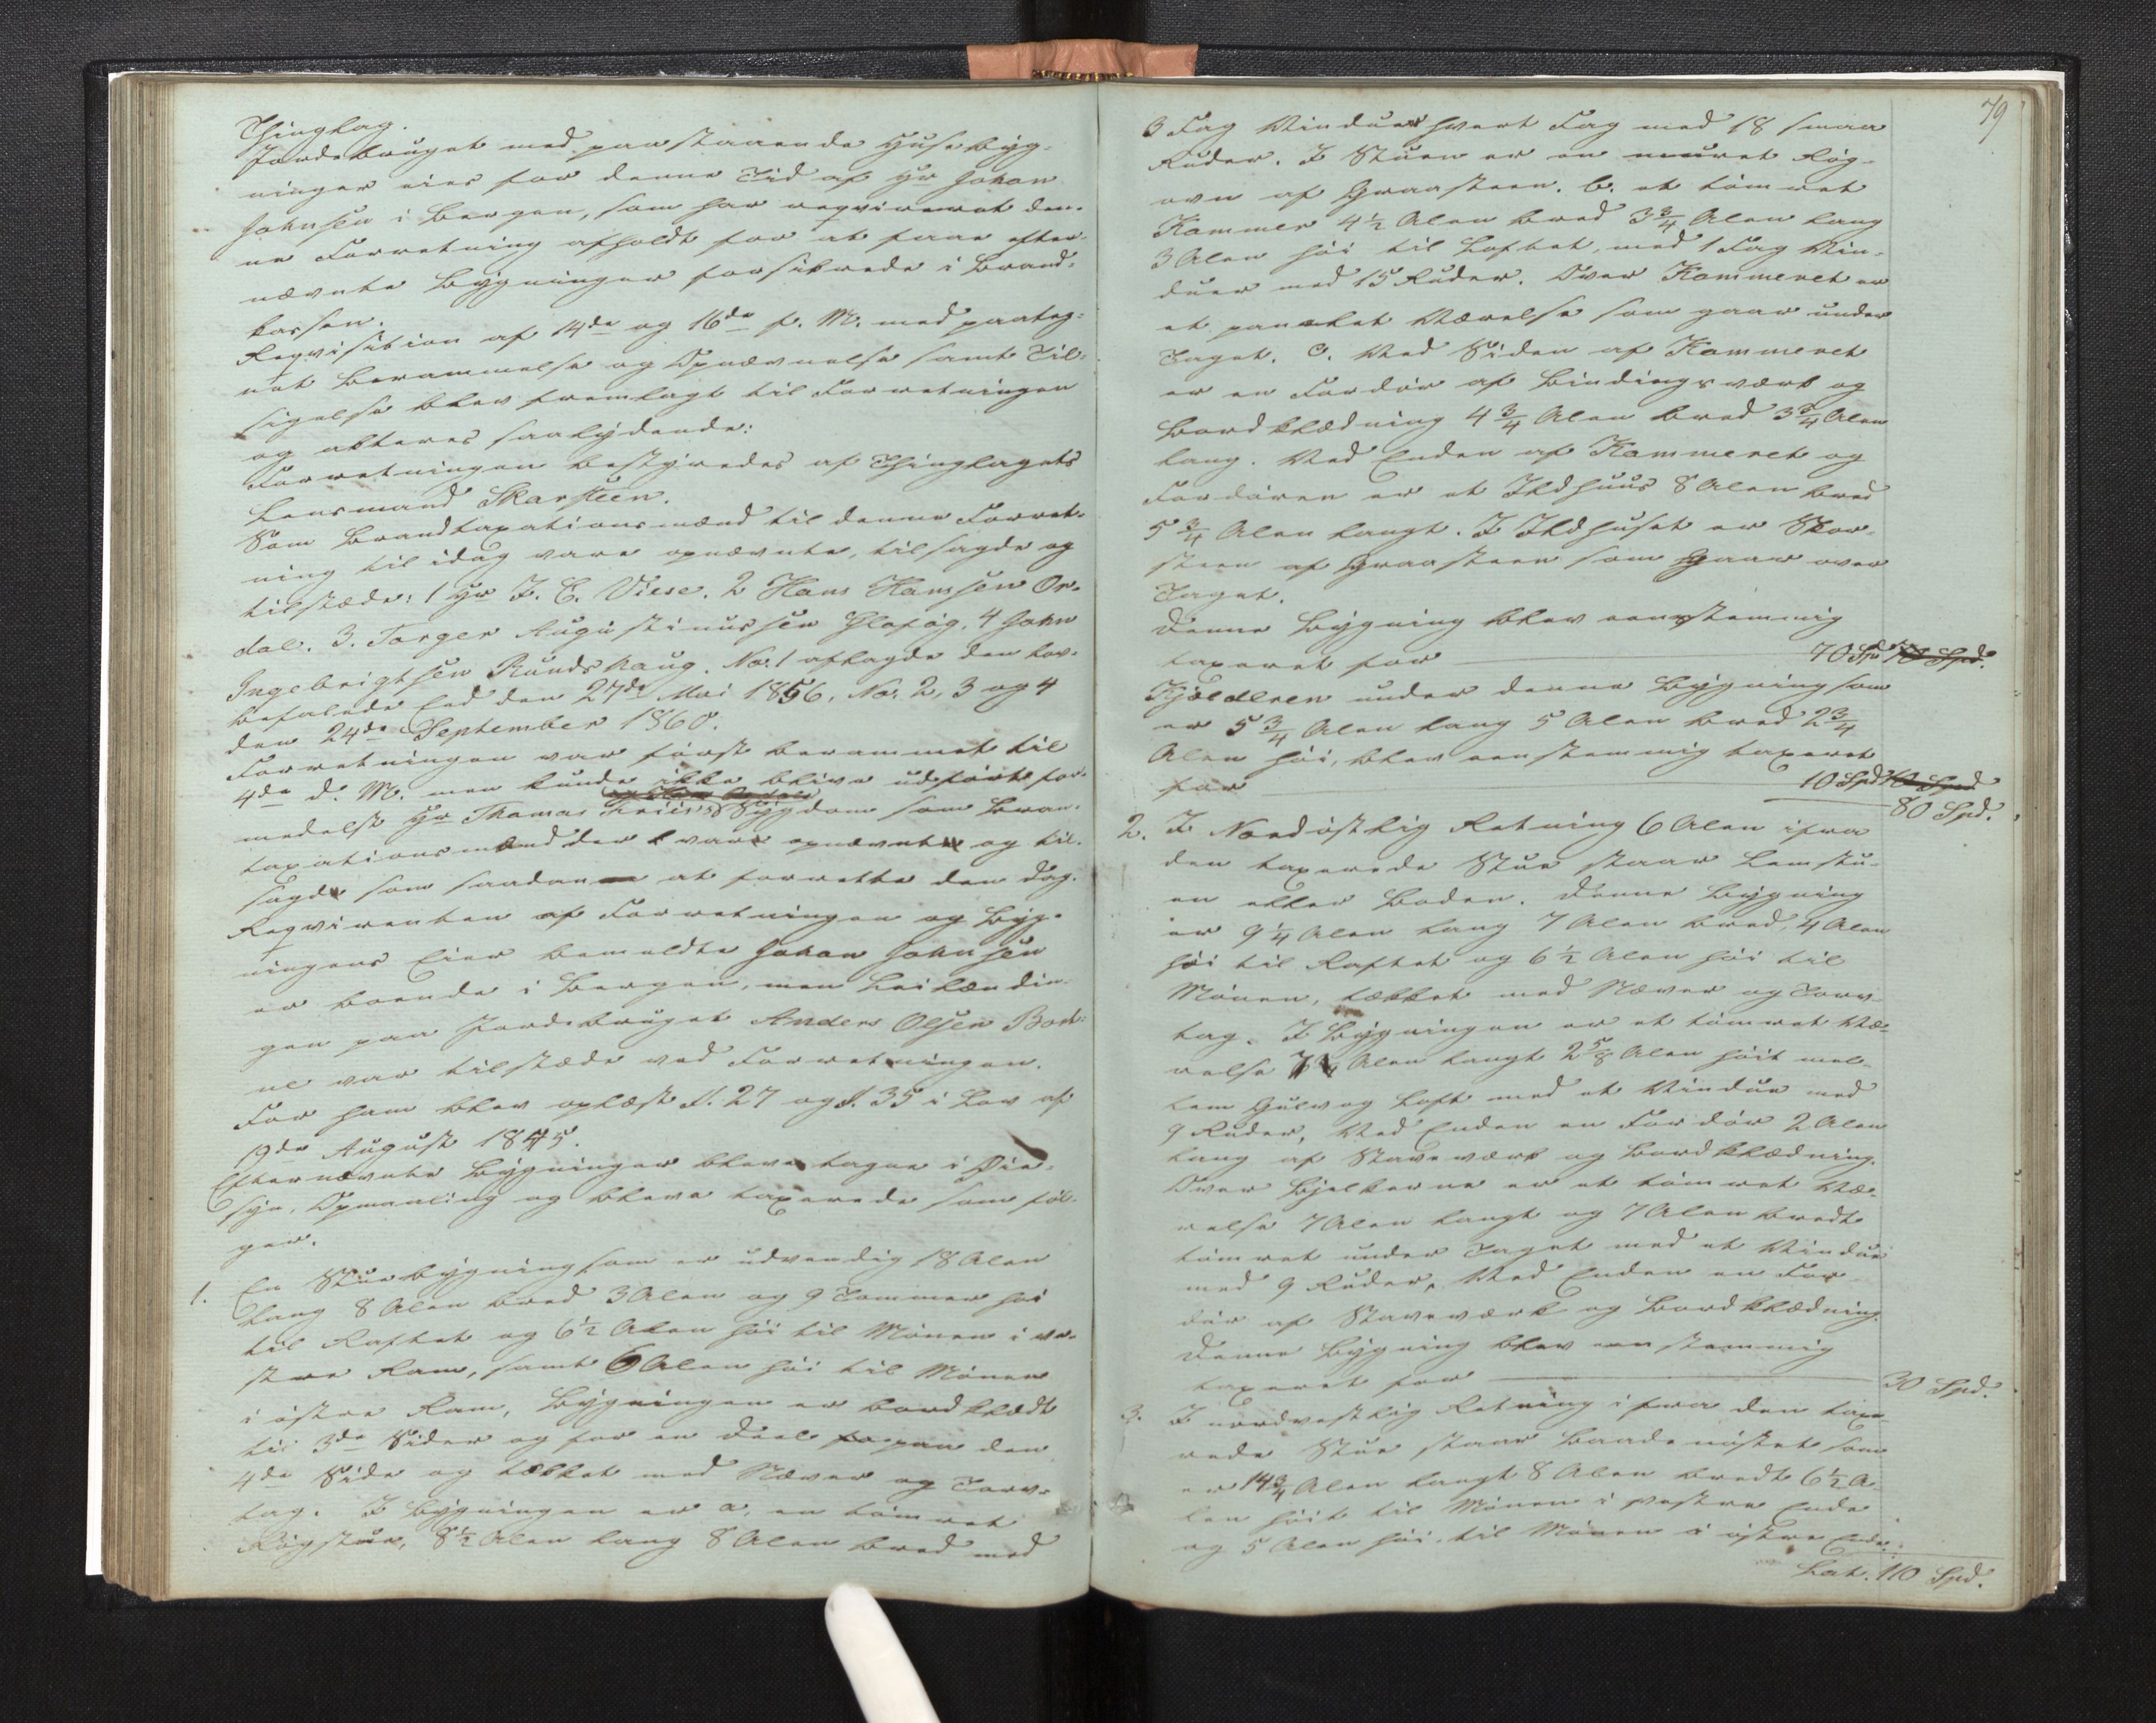 Thinglag.
Jordebruget med paastaaende Husebyg-
ninger eies for denne Tid af Hr Johan
Johnsen i Bergen, som har reqvireret den-
ne Forretning afholdt for at faae efter-
nævnte Bygninger forsikrede i Brand-
kassen.
Reqvisition af 14de og 16de f. M. med paateg-
net Berammelse og Opnævnelse samt Til-
sigelse blev fremlagt til Forretningen
og akteres saalydende:
Forretningen bestyredes af Thinglagets
Lensmand Skarsteen.
Som Brandtaxationsmænd til denne Forret-
ning til idag vare opnævnte, tilsagde og
tilstæde: 1 Hr J. E. Viese. 2 Hans Hansen Or-
dal. 3. Torger Augustinussen 4 John
Ingebrigtsen Rundshaug. No. 1 aflagde den lov-
befalede Eed den 27de Mai 1856, No. 2, 3 og 4
den 24de September 1860.
Forretningen var først berammet til
4de d. M. men kunde ikke blive udført for-
medelst Hr Thomas Friis's Sygdom som Bran-
taxationsmænd der var opnævnt og til-
sagde som saadan at forrette den Dag.
Reqvirenten af Forretningen og Byg-
ningens Eier bemeldte Johan Johnsen
er boende i Bergen, men Leilændin-
gen paa Jordebruget Anders Olsen Bort-
ne var tilstæde ved Forretningen.
For ham blev oplæst §. 27 og §. 35 i Lov af
19de August 1845.
Efternævnte Bygninger bleve tagne i Øie-
syn, Opmaaling og bleve taxerede som føl-
ger.
1. En Stuebygning som er udvendig 18 Alen
lang 8 Alen bred 3 Alen og 9 Tommer høi
til Raftet og 6½ Alen høi til Mønen i ve-
stre Ram, samt 6 Alen høi til Mønen
i østre Ram, Bygningen er bordklædt
til 3de Sider og for en Deel paa den
4de Side og tækket med Næver og Torv-
tag. I Bygningen er a, en tømret
Røgstue, 8½ Alen lang 8 Alen bred med
79
3 Fag Vinduer hvert Fag med 18 smaa
Ruder. I Stuen er en muret Røg-
ovn af Graasteen. b. et tømret
Kammer 4½ Alen bred 3¾ Alen lang
3 Alen høi til Loftet, med 1 Fag Vin-
duer med 15 Ruder. Over Kammeret er
et panelet Værelse som gaar under
Taget. c. Ved Siden af Kammeret
er en Fordør af Bindingsværk og
Bordklædning 4¾ Alen bred 3¾ Alen
lang. Ved Enden af Kammeret og
Fordøren er et Ildhuus 8 Alen bred
5¾ Alen langt. I Ildhuset er Skor-
steen af Graasteen som gaar over
Taget.
Denne Bygning blev eenstemmig
taxeret for 70 Sp 70 Spd.
Kjælderen under denne Bygning som
er 5¾ Alen lang 5 Alen bred 2¾
Alen høi, blev eenstemmig taxeret
for 10 Spd 10 Spd
80 Spd.
2. I Nordøstlig Retning 6 Alen ifra
den taxerede Stue staar Lemstu-
en eller Boden. Denne Bygning
er 9¼ Alen lang 7 Alen bred, 4 Alen
høi til Raftet og 6½ Alen høi til
Mønen, tækket med Næver og Torv-
tag. I Bygningen er et tømret Væ-
relse Alen langt 2⅝ Alen høit mel-
lem Gulv og Loft med et Vindue med
9 Ruder, Ved Enden en Fordør 2 Alen
lang af Staveværk og Bordklædning.
Over Bjelkerne er et tømret Væ-
relse 7 Alen langt og 7 Alen bredt
tømret under Taget med et Vindue
med 9 Ruder, Ved Enden en For
dør af Staveværk og Bordklædning.
Denne Bygning blev eenstemmig
taxeret for 30 Spd.
3. I nordvestlig Retning ifra den taxe-
rede Stue staar Baadenøstet som
er 14¾ Alen langt 8 Alen bredt 6½ A-
len høit til Mønen i vestre Ende
og 5 Alen høi til Mønen i østre Ende.
Lat. 110 Spd.